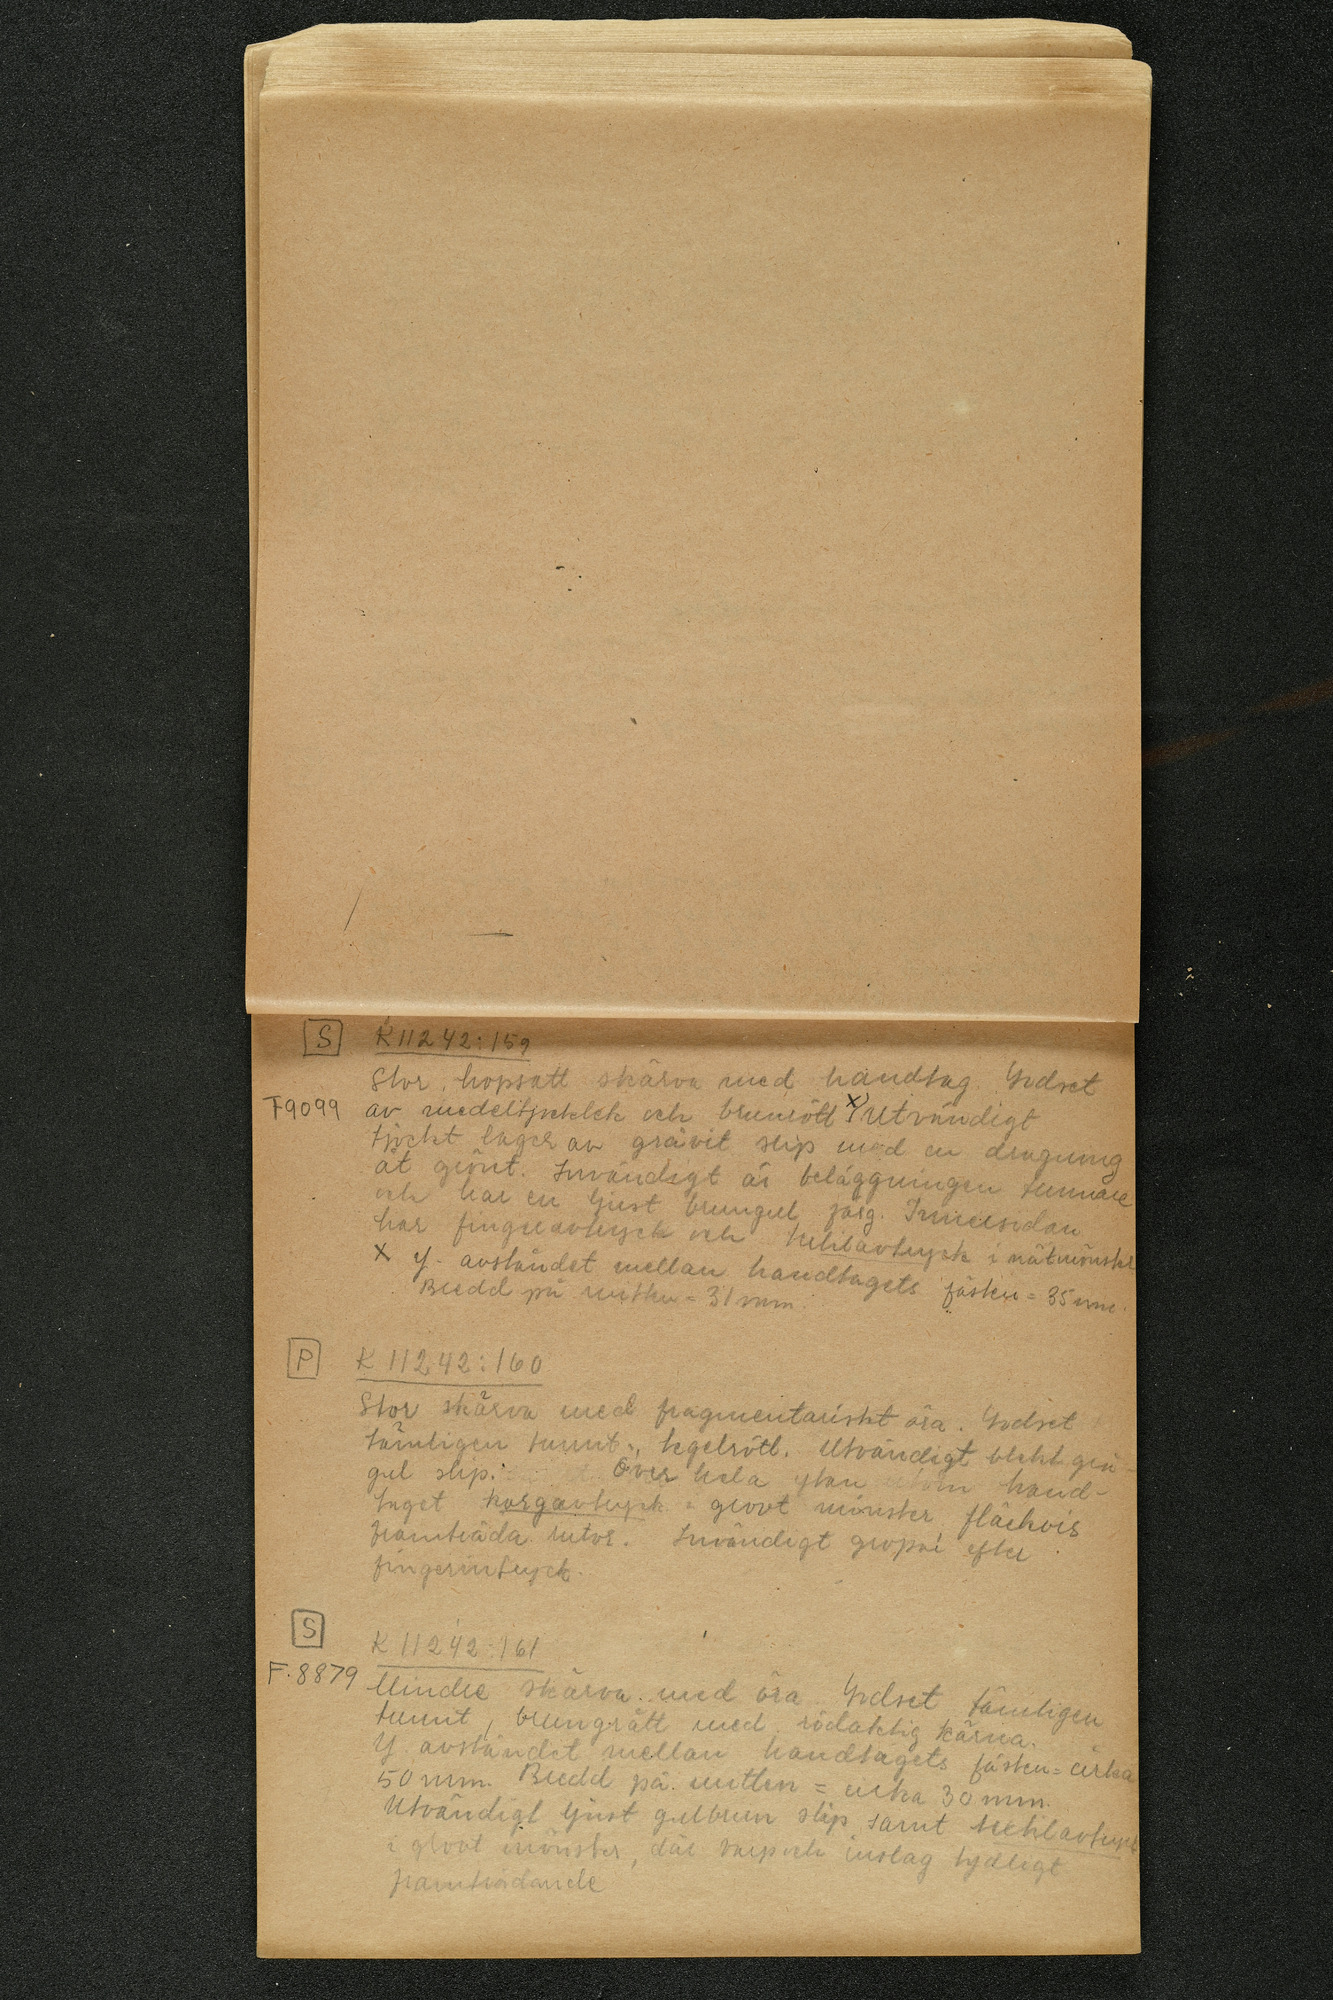 S K11242:159
Stor, hopsatt skärva med handtag. Godset
F9099 av medeltjocklek och brunrött x) Utvändigt
tjockt lager av gråvit slip med en dragning
åt grönt. Invändigt är beläggningen tunnare
och har en ljust brungul färg. Innersidan
har fingeravtryck och textilavtryck i nätmönster
x y. avståndet mellan handtagets fästen = 35 mm.
Bredd på mitten = 31 mm.
P K 11242:160
Stor skärva med fragmentariskt öra. Godset
tämligen tunnt, tegelrött. Utvändigt blekt grå-
gul slip. Över hela ytan utom hand-
taget korgavtryck i grovt mönster, fläckvis
framträda rutor. Invändigt gropar efter
fingerintryck.
S K 11242:161
F.8879 Mindre skärva med öra. Godset tämligen
tunnt, brungrått med rödaktig kärna.
Y. avståndet mellan handtagets fästen = cirka
50 mm. Bredd på mitten = cirka 30 mm.
Utvändigt ljust gulbrun slip samt textilavtryck
i grovt mönster, där varp och inslag tydligt
framträdande